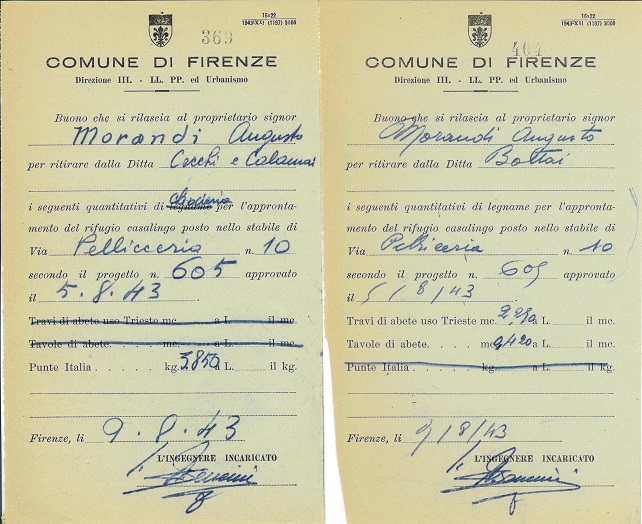 16×22
1943-XXI (1197) 3000
369
COMUNE DI FIRENZE
Direzione III. - LL. PP. ed Urbanismo
Buono che si rilascia al proprietario signor
Morandi Augusto
per ritirare dalla Ditta Cecchi e Calamai
i seguenti quantitativi di legname per l'appronta-
mento del rifugio casalingo posto nello stabile di
Via Pellicceria n. 10
secondo il progetto n. 605 approvato
il 5.8.43.
Travi di abete uso Trieste mc. a L. il mc.
Tavole di abete. mc. a L. il mc.
Punte Italia kg. 3.850 a L. il kg.
Firenze, li 9.8.43
L'INGEGNERE INCARICATO
16×22
1943-XXI (1197) 3000
404
COMUNE DI FIRENZE
Direzione III. - LL. PP. ed Urbanismo
Buono che si rilascia al proprietario signor
Morandi Augusto
per ritirare dalla Ditta Bottai
i seguenti quantitativi di legname per l'appronta-
mento del rifugio casalingo posto nello stabile di
Via Pelliceria n. 10
secondo il progetto n. 605 approvato
il 5/8/43
Travi di abete uso Trieste mc. a L. il mc.
Tavole di abete. mc. 0,420 a L. il mc.
Punte Italia kg. a L. il kg.
Firenze, li 9/8/43
L'INGEGNERE INCARICATO